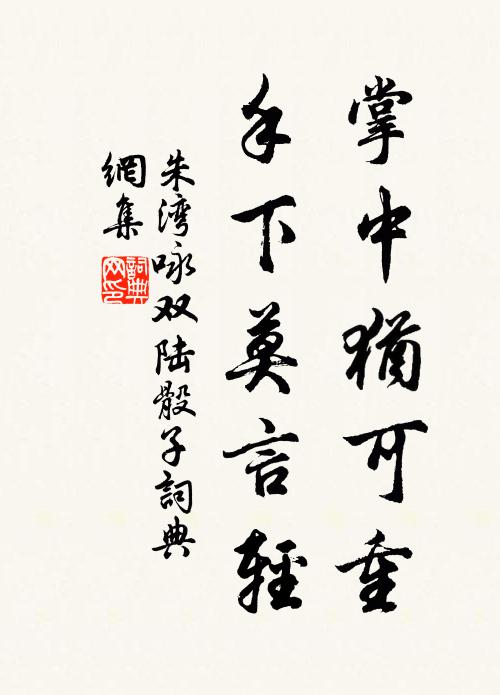 掌中猶可重
手下莫言輕
朱湾咏双陆骰子詞典
網集
詞典网印